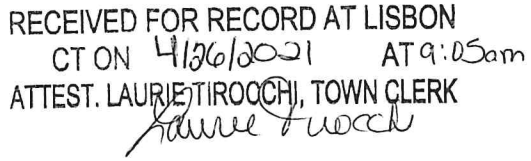 RECEIVED FOR RECORD AT LISBON
CT ON 4/26/2021 AT 9:05am
ATTEST. LAURIE TIROCCHI, TOWN CLERK
Laurie Tirocchi